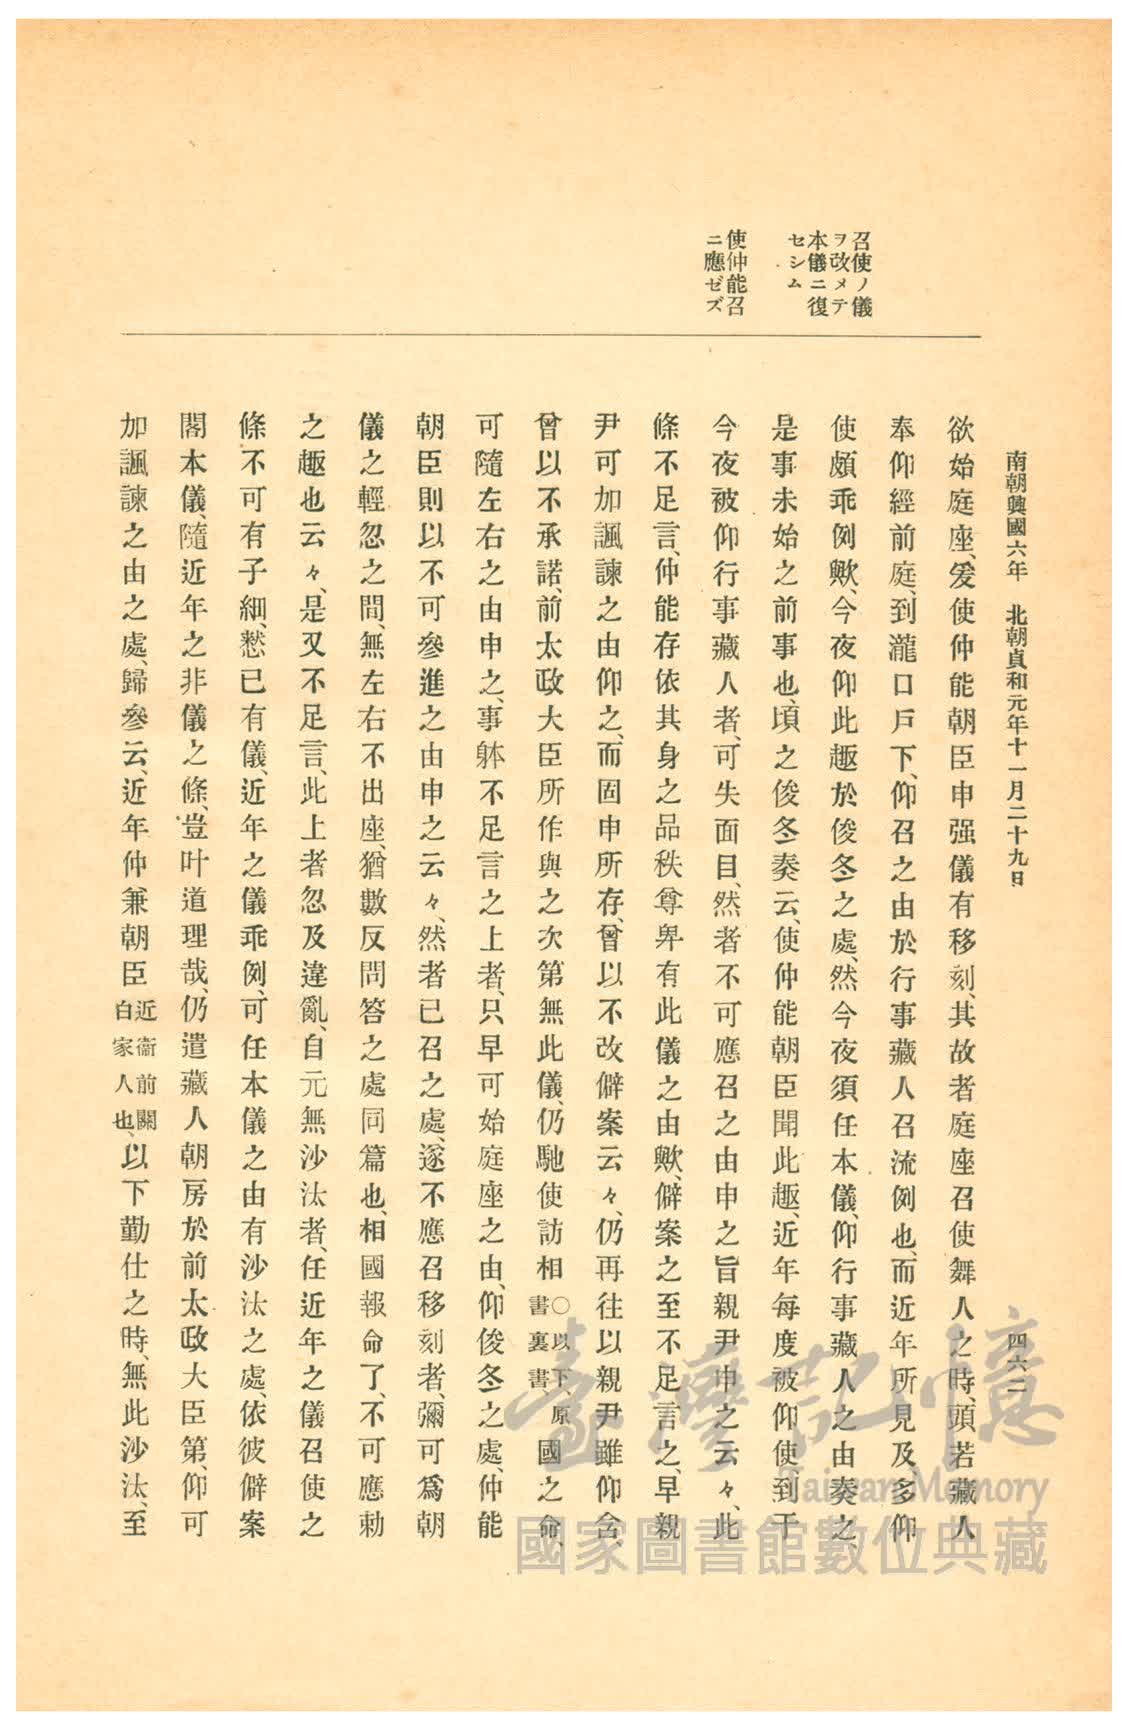 南朝興國六年　北朝貞和元年十一月二十九日　四六二
召使ノ儀
ヲ改メテ
本儀ニ復
セシム
使仲能召
ニ應ゼズ
欲始庭座、爰使仲能朝臣申强儀有移刻、其故者庭座召使舞人之時、頭若藏人
奉仰經前庭、到瀧口戶下、仰召之由於行事藏人召流例也、而近年所見及多仰
使頗乖例歟、今夜仰此趣於俊冬之處、然今夜須任本儀、仰行事藏人之由奏之、
是事未始之前事也、頃之俊冬奏云、使仲能朝臣聞此趣、近年每度被仰使到于
今夜被仰行事藏人者、可失面目、然者不可應召之由申之旨親尹申之云々、此
條不足言、仲能存依其身之品秩尊卑有此儀之由歟、僻案之至不足言之、早親
尹可加諷諫之由仰之、而固申所存、曾以不改僻案云々、仍再往以親尹雖仰含、
曾以不承諾、前太政大臣所作與之次第無此儀、仍馳使訪相○以下、原書裏書國之命、
可隨左右之由申之、事躰不足言之上者、只早可始庭座之由、仰俊冬之處、仲能
朝臣則以不可參進之由申之云々、然者已召之處、遂不應召移刻者、彌可爲朝
儀之輕忽之間、無左右不出座、猶數反問答之處同篇也、相國報命了、不可應勅
之趣也云々、是又不足言、此上者忽及違亂、自元無沙汰者、任近年之儀召使之
條不可有子細、愁已有儀、近年之儀乖例、可任本儀之由有沙汰之處、依彼僻案
閣本儀、隨近年之非儀之條、豈叶道理哉、仍遣藏人朝房於前太政大臣第、仰可
加諷諫之由之處、歸參云、近年仲兼朝臣近衞前關白家人也、以下勤仕之時、無此沙汰、至
臺灣記憶
Taiwan Memory
國家圖書館數位典藏